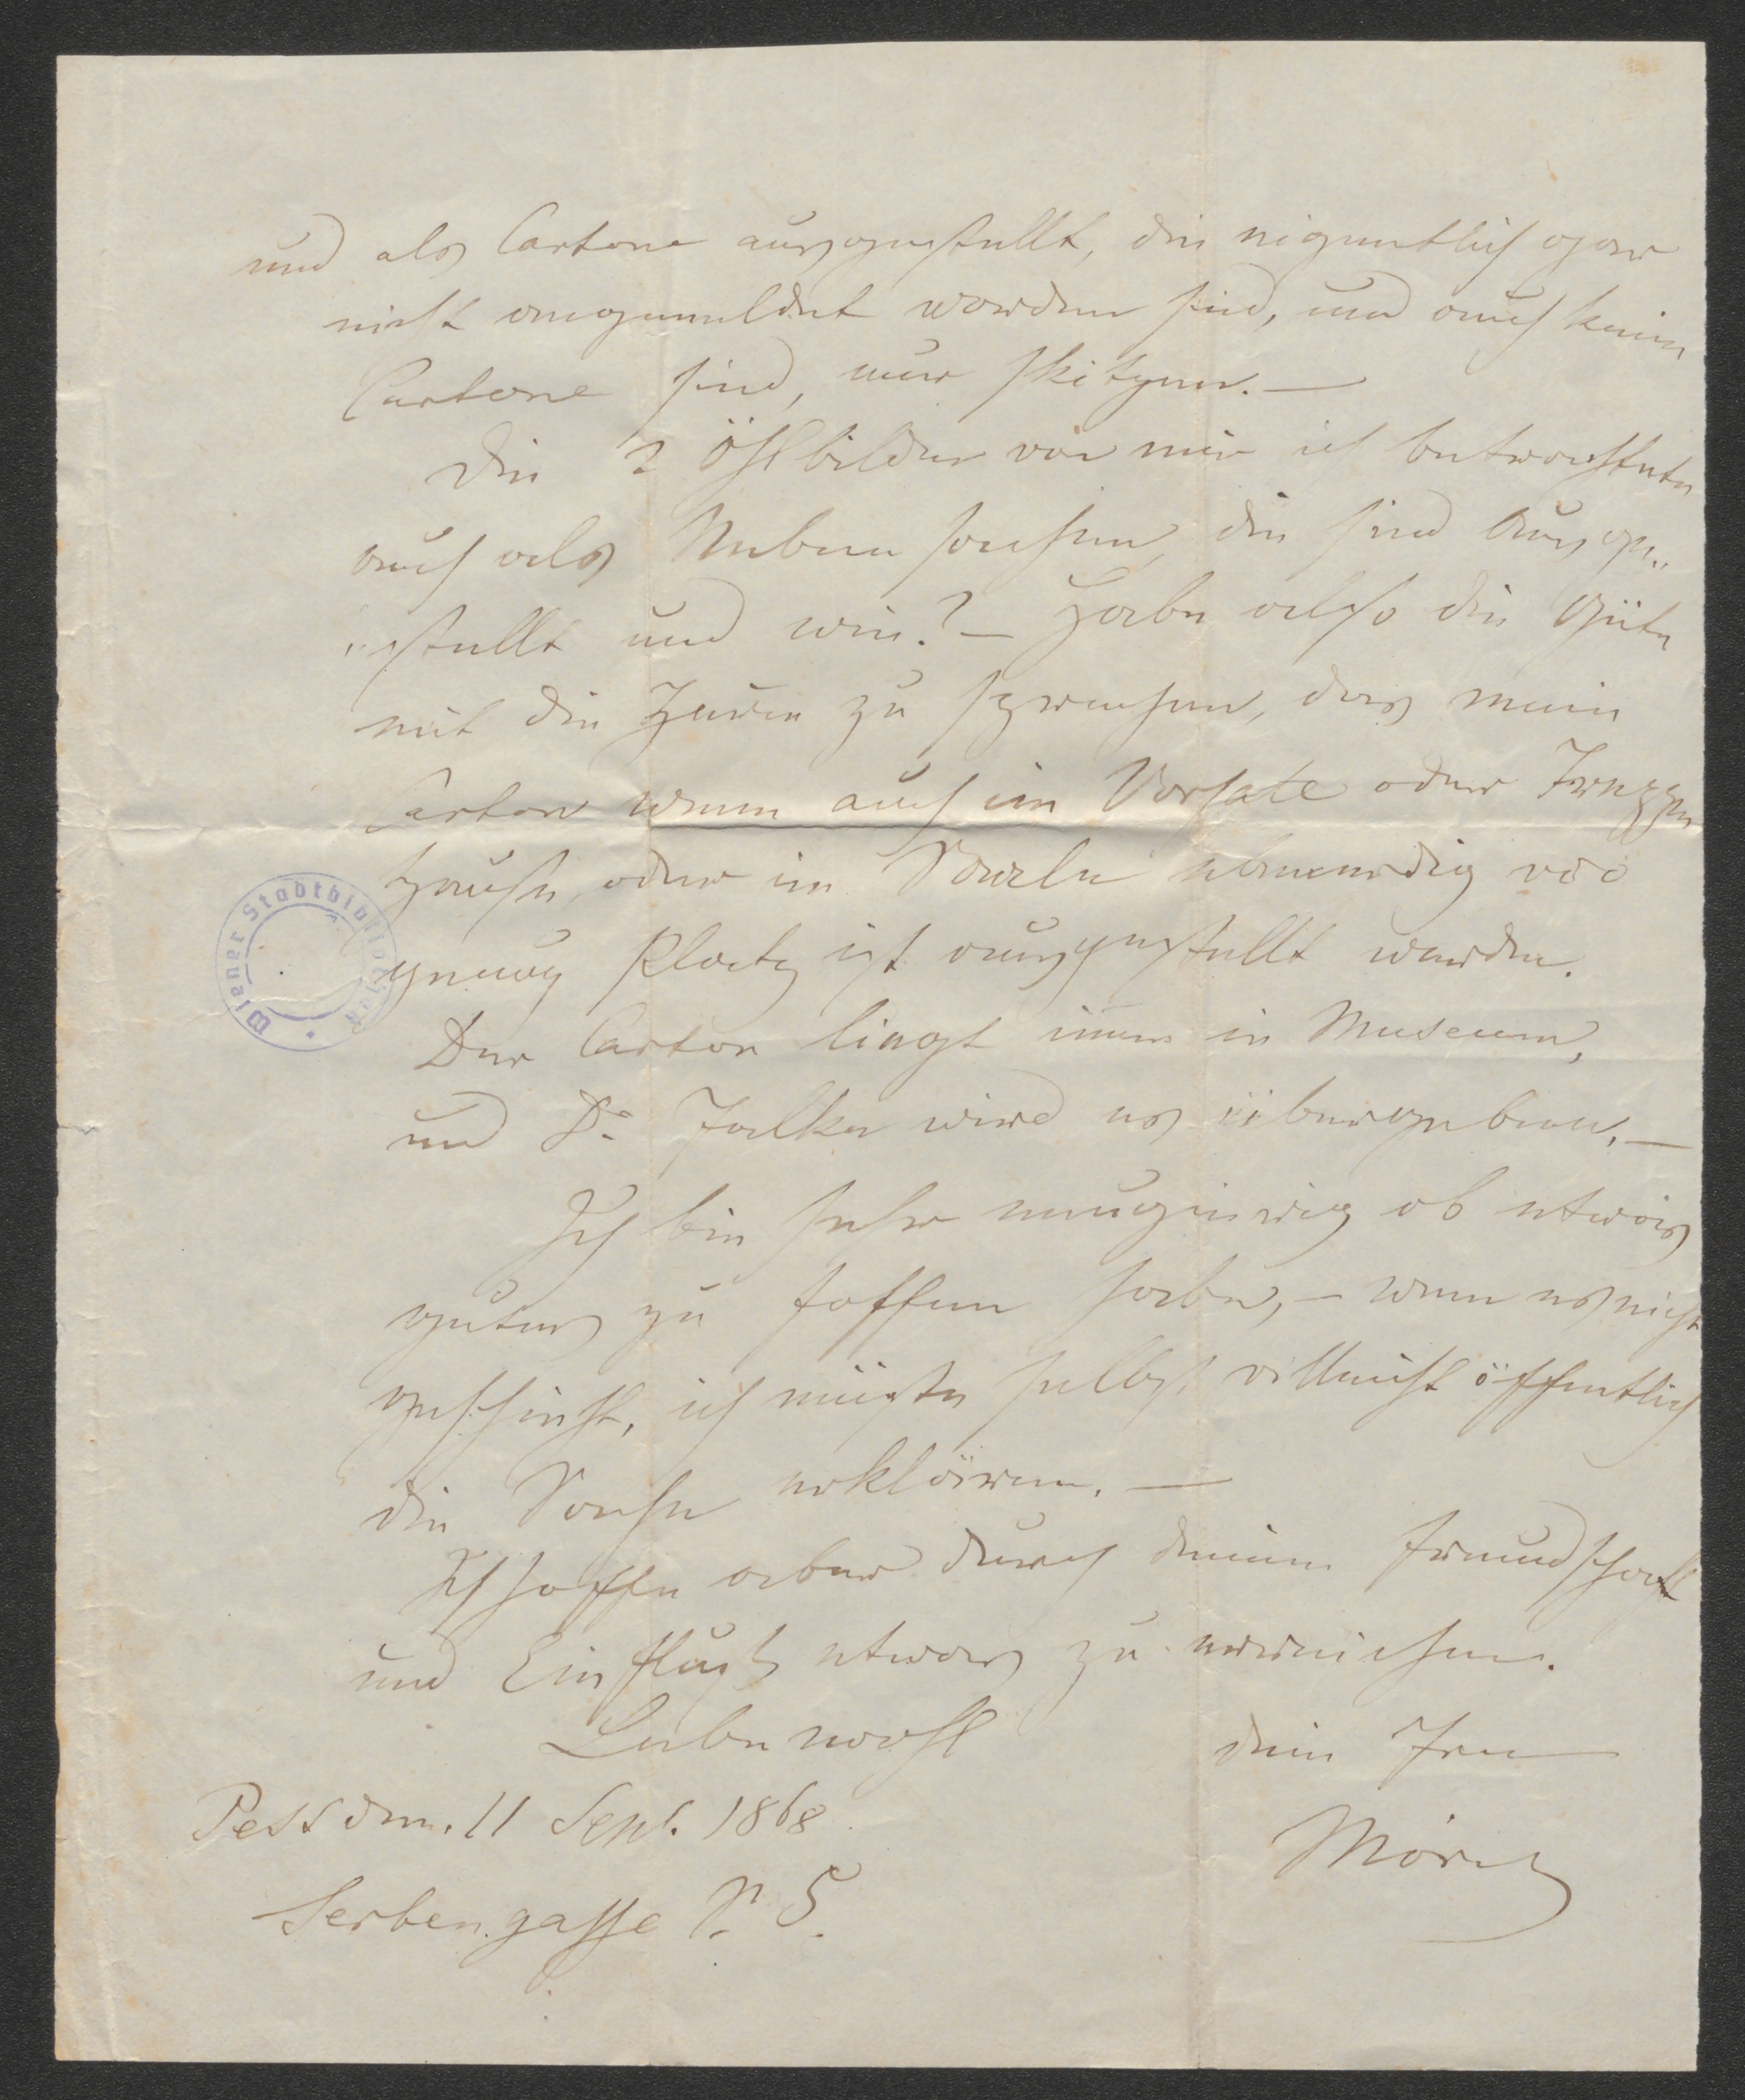 und als Cartone ausgestellt, die eigentlich gar
nicht angemeldet worden sind, und auch keine
Cartone sind, nur skitzen. —
Die 2 Öhlbilder von mir ich betrachtete
auch als Neben sachen, die sind Ausge„
„stellt und wie? — Habe also die Güte
mit die Jurie zu sprechen, das mein
Carton wenn auch im Vorsale oder Treppen
hause, oder im Saale ebenerdig wo
genug Platz ist ausgestellt werden.
Der Carton liegt im̄er in Museum,
und Dr. Falke wird es übergeben. —
Ich bin sehr neugierig ob etwas
gutes zu hoffen habe, — wenn es nicht
geschieht, ich müßte selbst villeicht öffentlich
die Sache erklären. —
Ich hoffe aber durch deine freundschaft
und Einfluß etwas zu erreichen.
Lebe wohl dein
Pest den. 11 Sept. 1868
Moritz
Serbengasse N. 5.
Wiener Stadtbibliothek